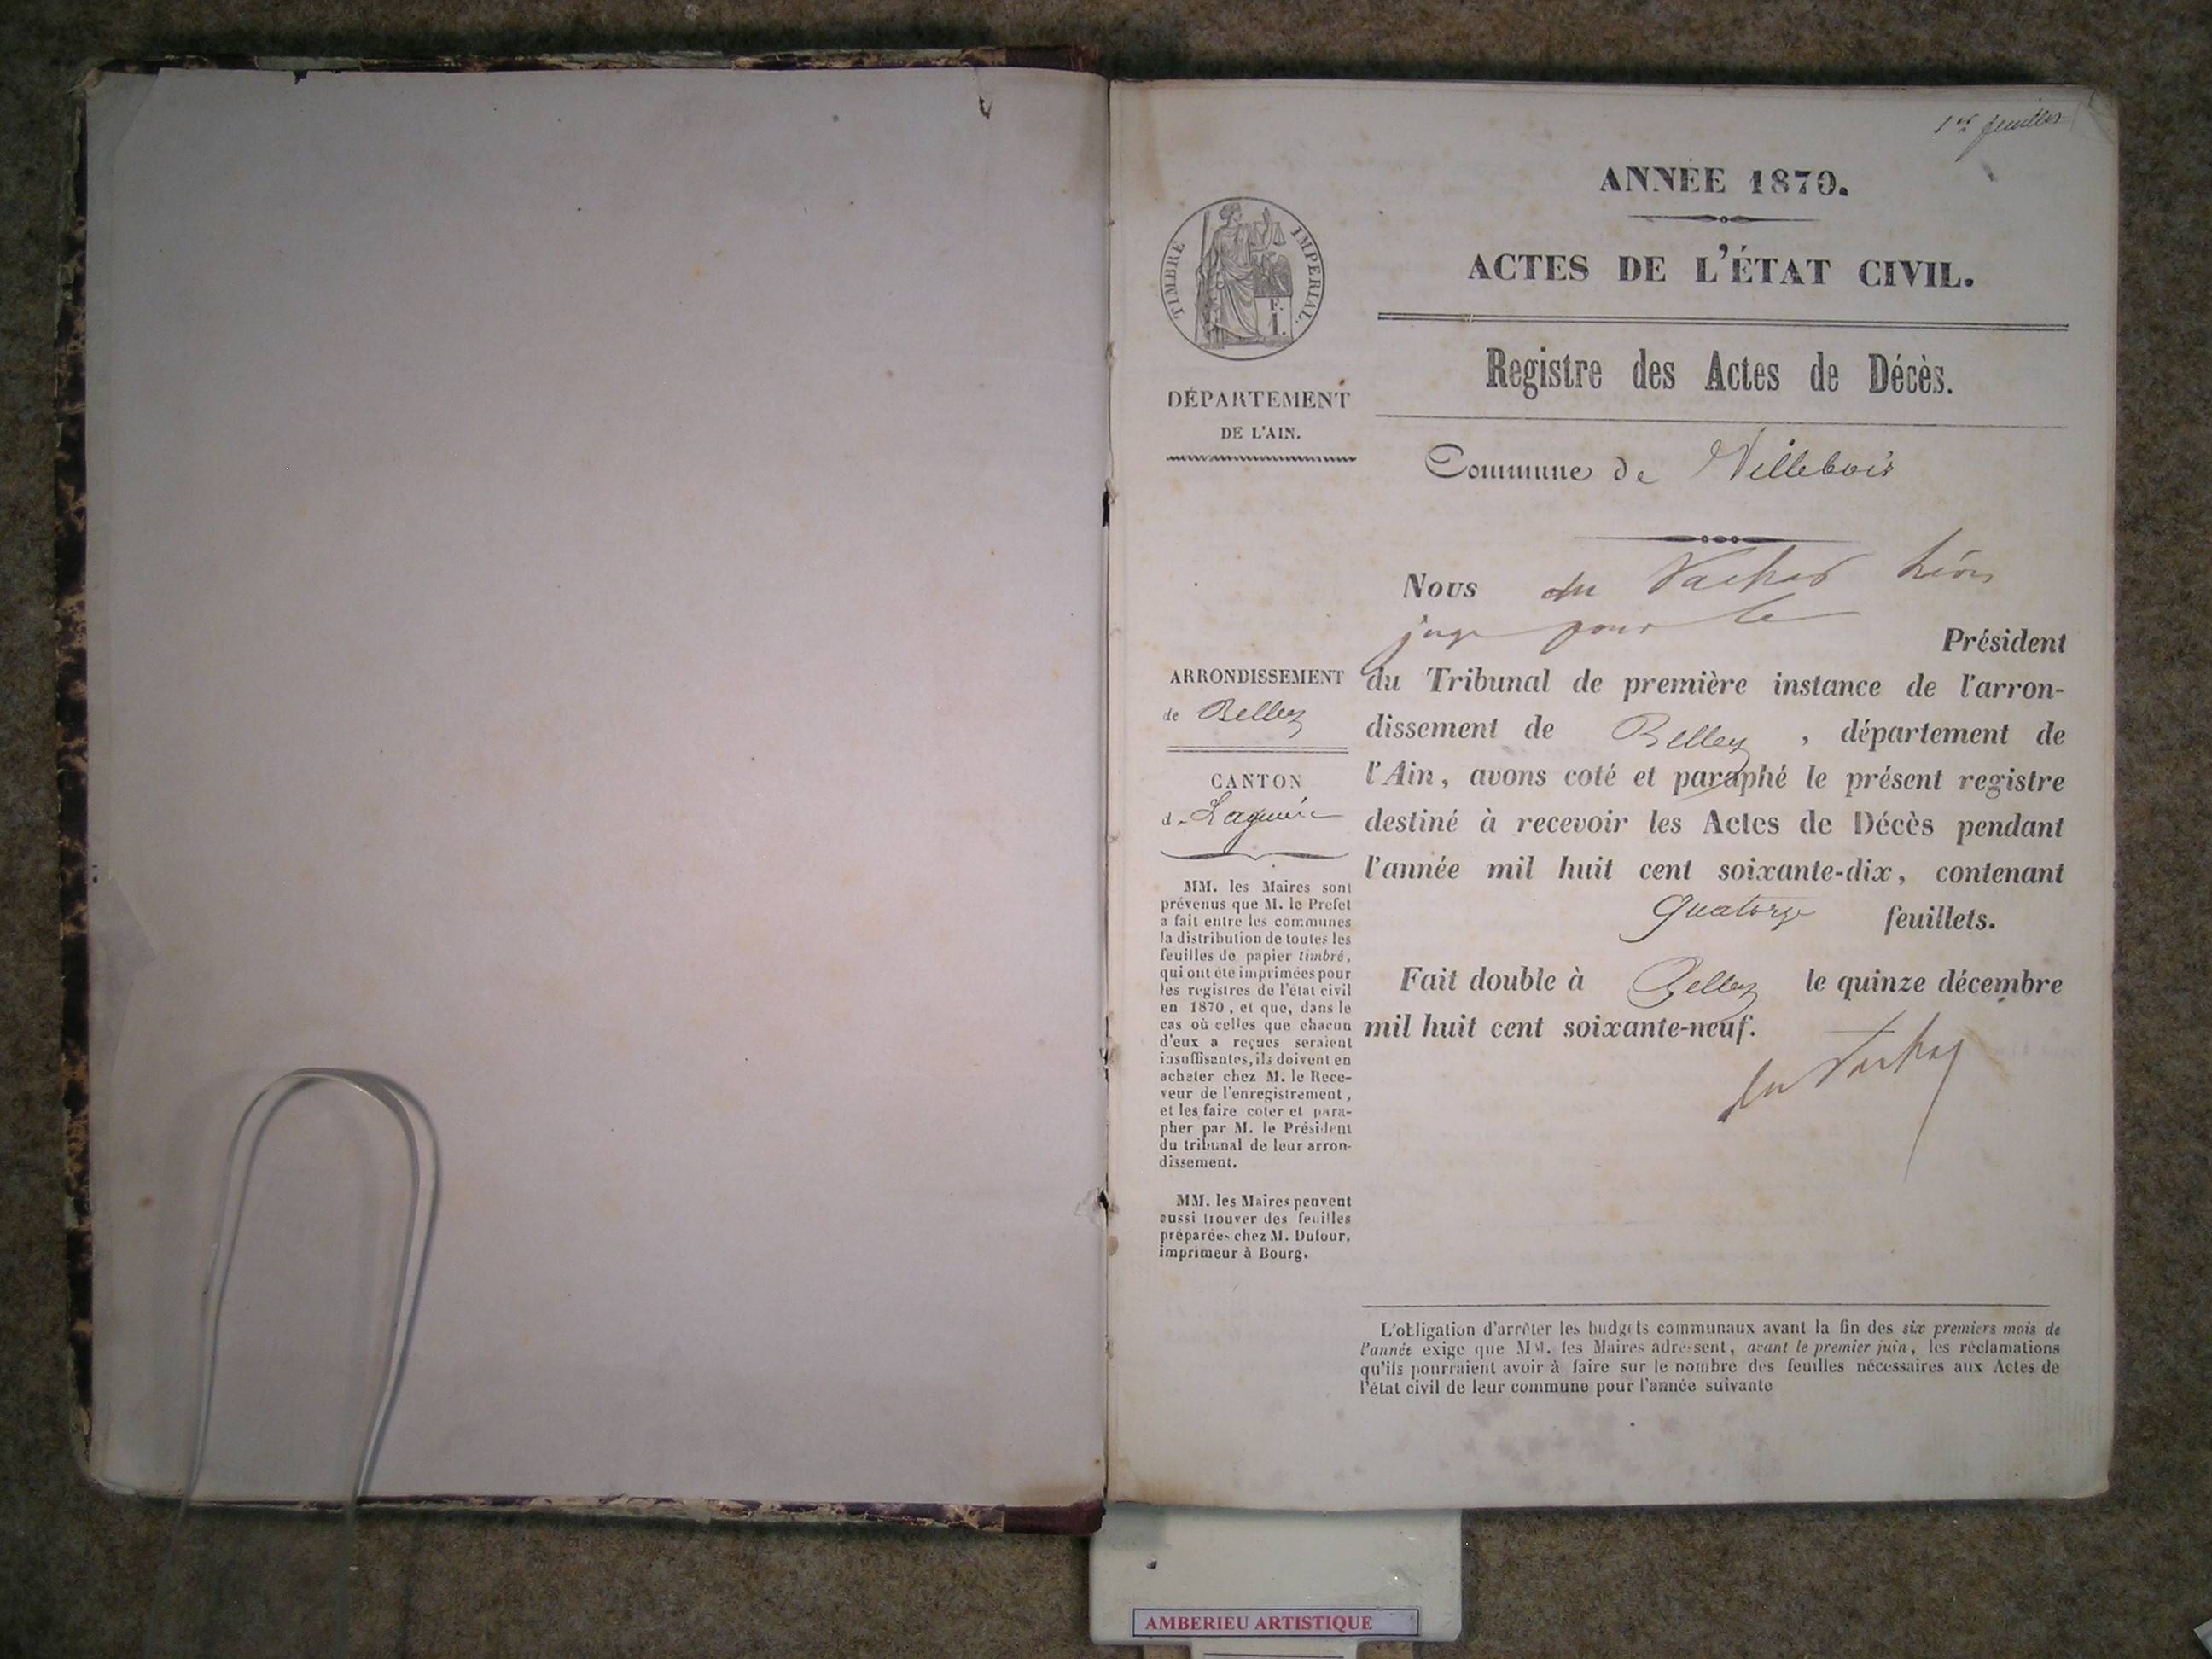 1er feuillet
ANNÉE 1870.
ACTES DE L'ÉTAT CIVIL.
Registre des Actes de Décès.
Commune de Villebois
TIMBRE IMPERIAL.
F.
1.
DÉPARTEMENT
DE L'AIN.
ARRONDISSEMENT
de Belley
CANTON
de Lagnieu
MM. les Maires sont
prévenus que M. le Prefet
a fait entre les communes
la distribution de toutes les
feuilles de papier timbré,
qui ont été imprimées pour
les registres de l'état civil
en 1870, et que, dans le
cas où celles que chacun
d'eux a reçues seraient
insuffisantes, ils doivent en
acheter chez M. le Rece-
veur de l'enregistrement,
et les faire coter et para-
pher par M. le Président
du tribunal de leur arron-
dissement.
MM. les Maires peuvent
aussi trouver des feuilles
préparées chez M. Dufour,
imprimeur à Bourg.
Nous du Vachat Léon
juge pour le
Président
du Tribunal de première instance de l'arron-
dissement de Belley, département de
l'Ain, avons coté et paraphé le présent registre
destiné à recevoir les Actes de Décès pendant
l'année mil huit cent soixante-dix, contenant
quatorze feuillets.
Fait double à Belley le quinze décembre
mil huit cent soixante-neuf.
du Vachat
L'obligation d'arrêter les budgets communaux avant la fin des six premiers mois de
l'année exige que MM. les Maires adressent, avant le premier juin, les réclamations
qu'ils pourraient avoir à faire sur le nombre des feuilles nécessaires aux Actes de
l'état civil de leur commune pour l'année suivante
AMBERIEU ARTISTIQUE